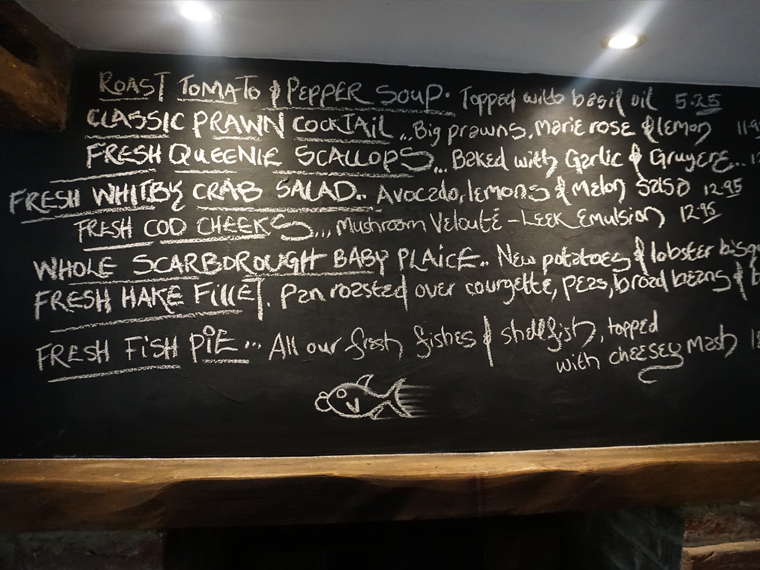 ROAST TOMATO & PEPPER SOUP. Topped with basil oil 5.25
CLASSIC PRAWN COCKTAIL ... Big prawns, marie rose & lemon 11.9
FRESH QUEENIE SCALLOPS... Baked with Garlic & Gruyere.. 1
FRESH WHITBY CRAB SALAD.. Avocado, lemons & Melon Salsa 12.95
FRESH COD CHEEKS ... Mushroom Velouté - Leek Emulsion 12.95
WHOLE SCARBOROUGH BABY PLAICE.. New potatoes & lobster bisq
FRESH HAKE FILLET. Pan roasted over courgette, peas, broad beans & b
FRESH FISH PIE... All our fresh fishes & shellfish, topped
with cheesey mash 1